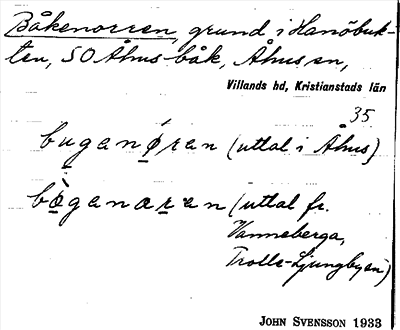 Båkenorren, grund i Hanöbuk-
ten, SO Åhus båk, Åhus sn,
Villands hd, Kristianstads län
35
buganǿran (uttal i Åhus)
bòganæran (uttal fr.
Vanneberga,
Trolle-Ljungbysn)
JOHN SVENSSON 1933